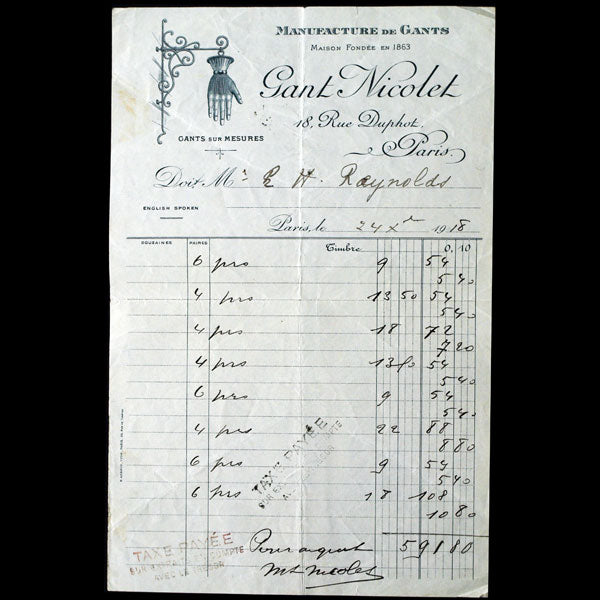 MANUFACTURE DE GANTS
MAISON FONDÉE EN 1863
Gant Nicolet
18, Rue Duphot.
Paris.
GANTS SUR MESURES
Doit Mr E H. Raynolds
ENGLISH SPOKEN
Paris, le 24 Xbre 1918
DOUZAINES PAIRES Timbre 0,10
6 prs 9 54
5 40
4 prs 13 50 54
5 40
4 prs 18 72
7 20
4 prs 13 50 54
5 40
6 prs 9 54
5 40
4 prs 22 88
8 80
6 prs 9 54
5 40
6 prs 18 108
10 80
591 80
TAXE PAYÉE
SUR COMPTE
AVEC LE TRÉSOR
TAXE PAYÉE
SUR COMPTE
AVEC LE TRÉSOR
Pour acquit
Nicolet